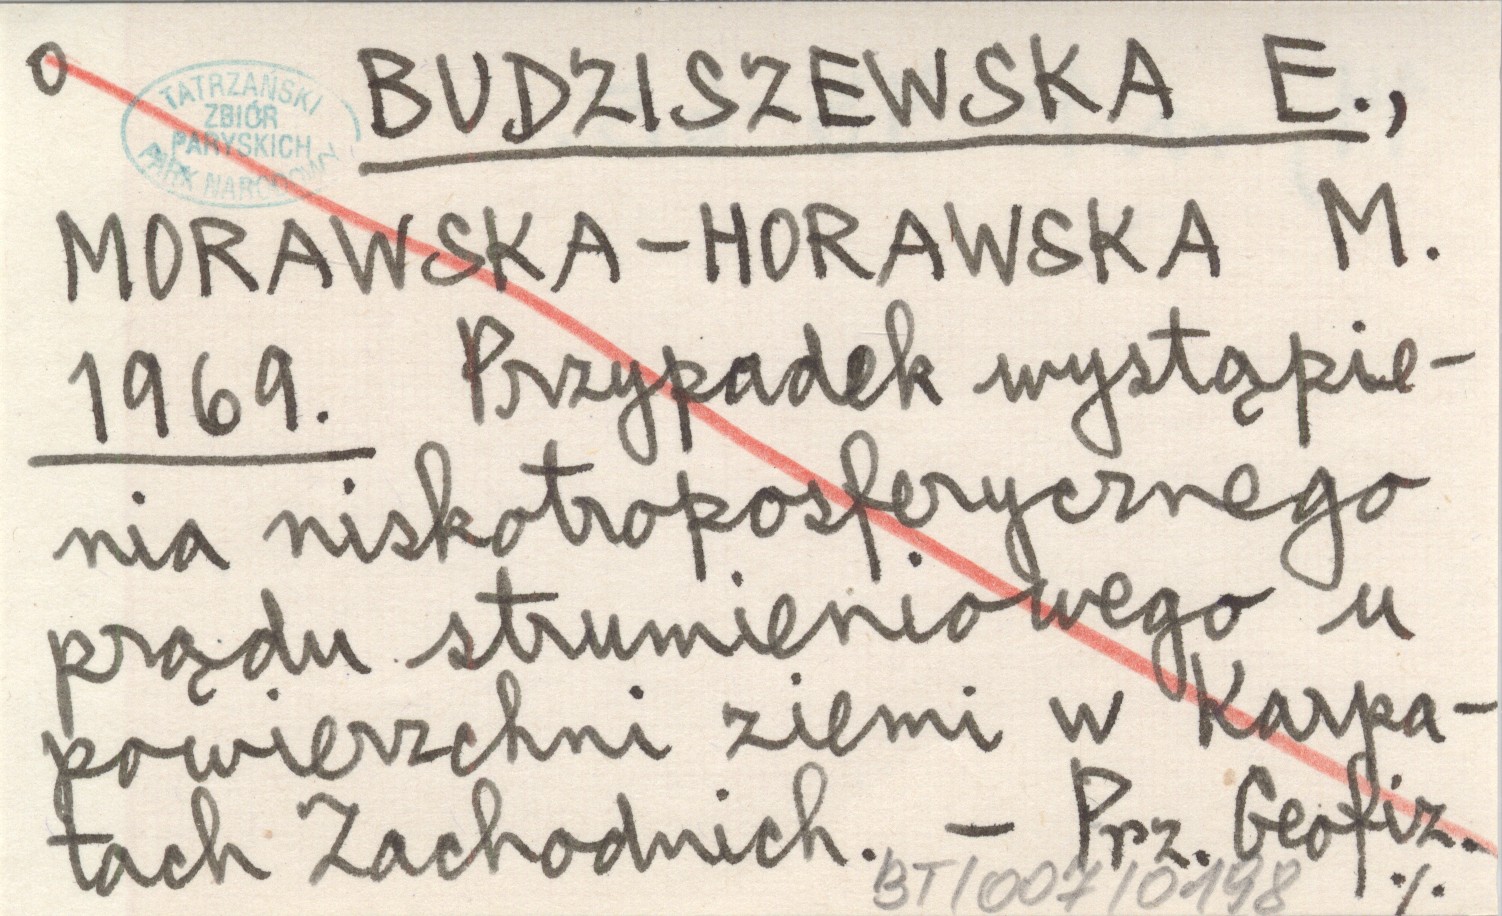 O
TATRZAŃSKI
ZBIÓR
PARYSKICH
PARK NARODOWY
BUDZISZEWSKA E.,
MORAWSKA-HORAWSKA M.
1969. Przypadek wystąpie-
nia niskotroposferycznego
prądu strumieniowego u
powierzchni ziemi w Karpa-
tach Zachodnich. – Prz. Geofiz.
BT/007/0198 ./.